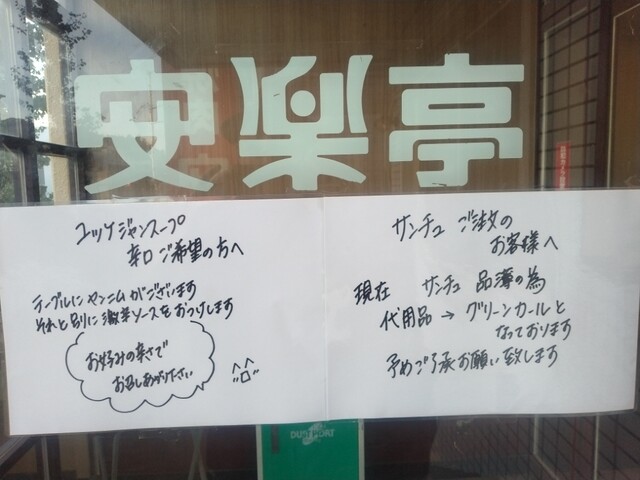 安楽亭
ユッケジャンスープ
辛口ご希望の方へ
テーブルにヤンニムがございます
それと別に激辛ソースをおつけします
お好みの辛さで
お召しあがり下さい
サンチュ ご注文の
お客様へ
現在 サンチュ 品薄の為
代用品 → グリーンカールと
なっております
予めご了承お願い致します